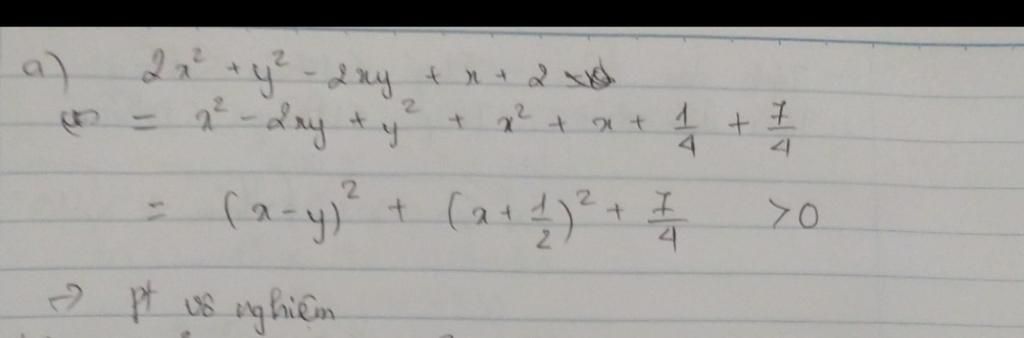 a) 2x² + y² - 2xy + x + 2
= x² - 2xy + y² + x² + x + 1/4 + 7/4
= (x-y)² + (x + 1/2)² + 7/4 > 0
→ pt vô nghiệm